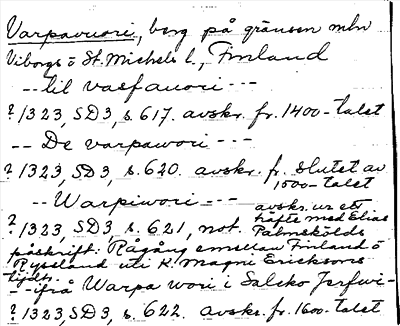 Varpavuori, berg på gränsen mln
Viborgs o St. Michels l., Finland
-- til vasfauori ---
? 1323, SD3, s. 617. avskr. fr. 1400-talet
-- De varpawori ---
? 1323, SD3, s. 620. avskr. fr. slutet av
1500-talet
-- Warpiwori ---
avskr. ur ett
häfte med Elias
? 1323, SD3, s. 621, not. Palmskölds
påskrift: Rågång emellan Finland o
Rysseland uti K. Magni Ericksons
tijdh
-- ifrå Warpa wori i Salsko Jerfwi-
? 1323, SD3, s. 622. avskr. fr. 1600-talet